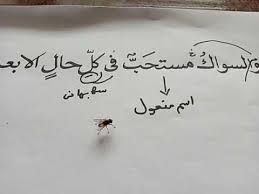 السواكُ مستحَبٌّ في كلِّ حالٍ الا بعد
اسم مفعول